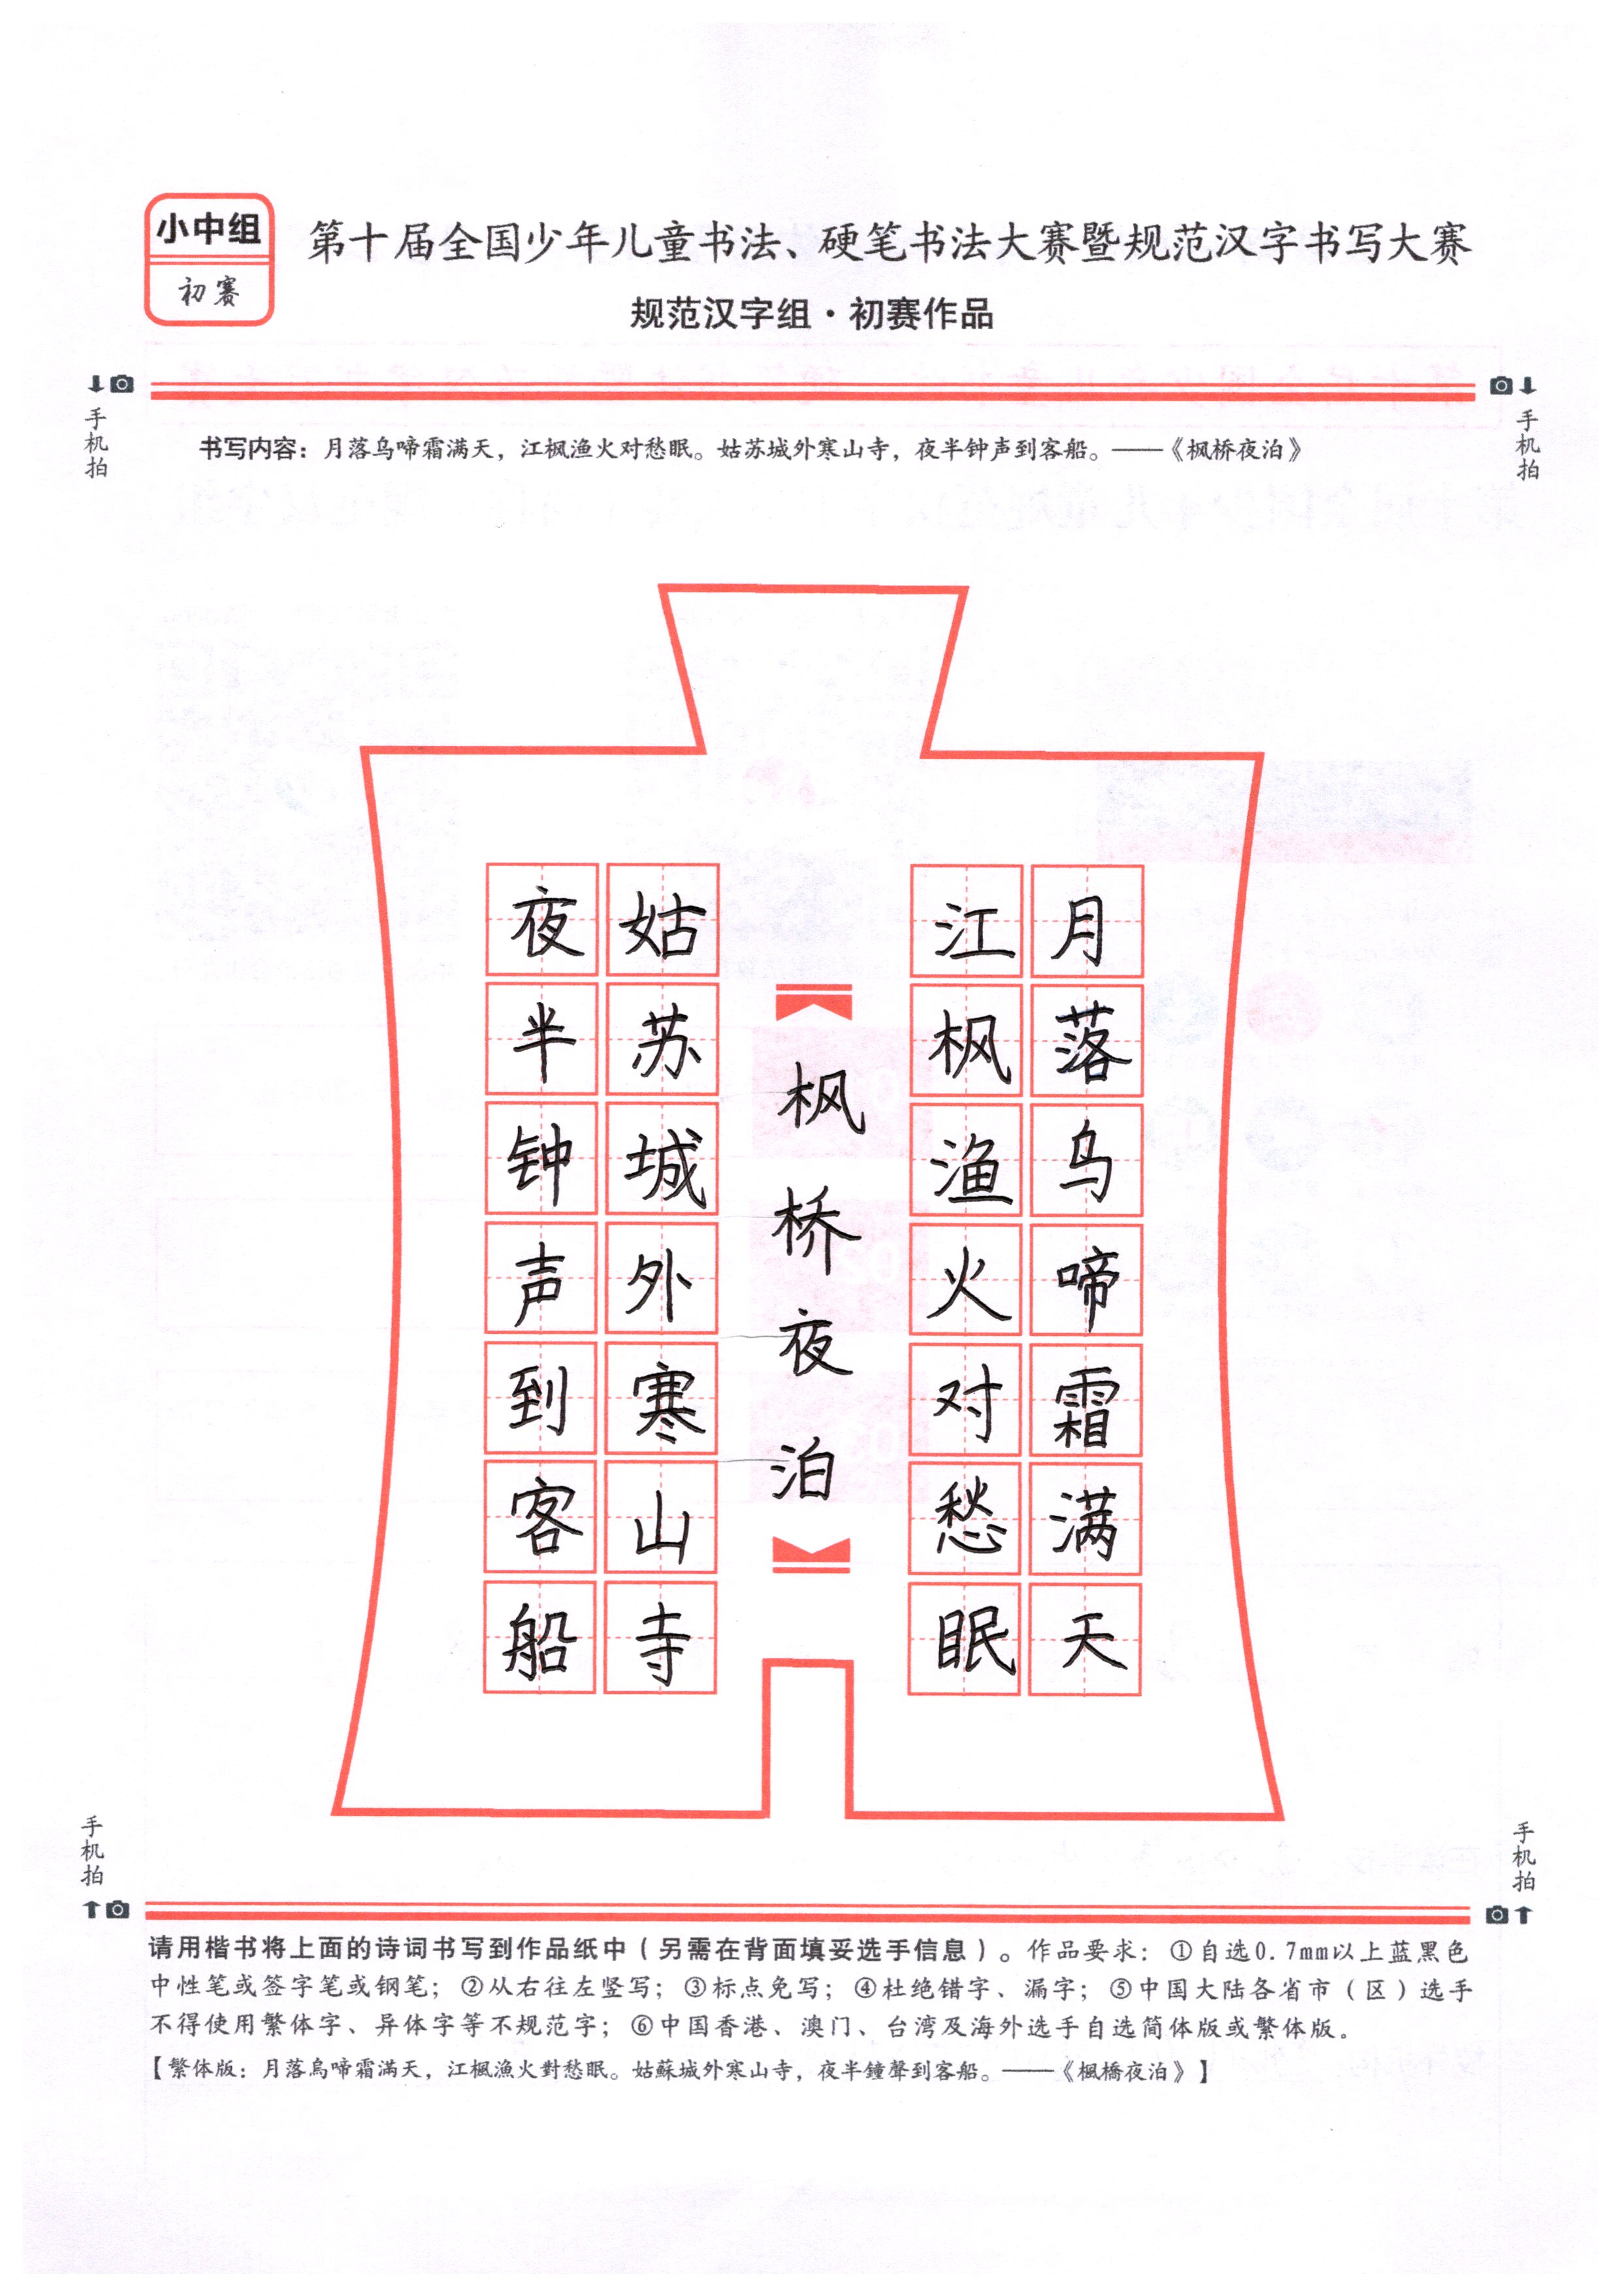 小中组
初赛
第十届全国少年儿童书法、硬笔书法大赛暨规范汉字书写大赛
规范汉字组·初赛作品
手机拍
手机拍
书写内容：月落乌啼霜满天，江枫渔火对愁眠。姑苏城外寒山寺，夜半钟声到客船。——《枫桥夜泊》
月落乌啼霜满天
江枫渔火对愁眠
枫桥夜泊
姑苏城外寒山寺
夜半钟声到客船
手机拍
手机拍
请用楷书将上面的诗词书写到作品纸中（另需在背面填妥选手信息）。作品要求：①自选0.7mm以上蓝黑色
中性笔或签字笔或钢笔；②从右往左竖写；③标点免写；④杜绝错字、漏字；⑤中国大陆各省市（区）选手
不得使用繁体字、异体字等不规范字；⑥中国香港、澳门、台湾及海外选手自选简体版或繁体版。
【繁体版：月落烏啼霜滿天，江楓漁火對愁眠。姑蘇城外寒山寺，夜半鐘聲到客船。——《楓橋夜泊》】